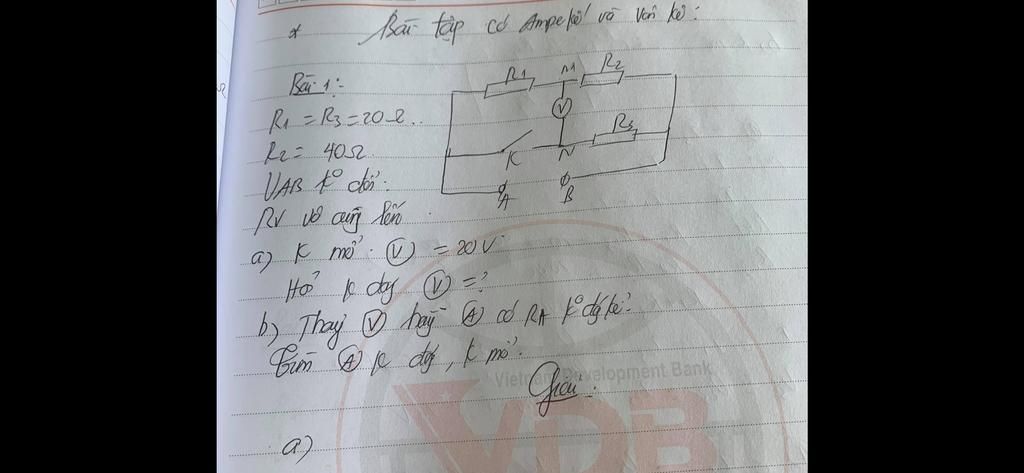 * Bài tập có Ampe kế và Vôn kế:
Bài 1:
R1 = R3 = 20Ω
R2 = 40Ω
UAB k° đổi.
RV vô cùng lớn
R1 M R2
V
K N R3
A B
a) K mở. (V) = 20V
Hỏi K đóng (V) = ?
b) Thay (V) bằng (A) có RA k° đáng kể.
Tìm (A) K đóng, K mở.
Giải:
Vietnam Development Bank
VDB
a)